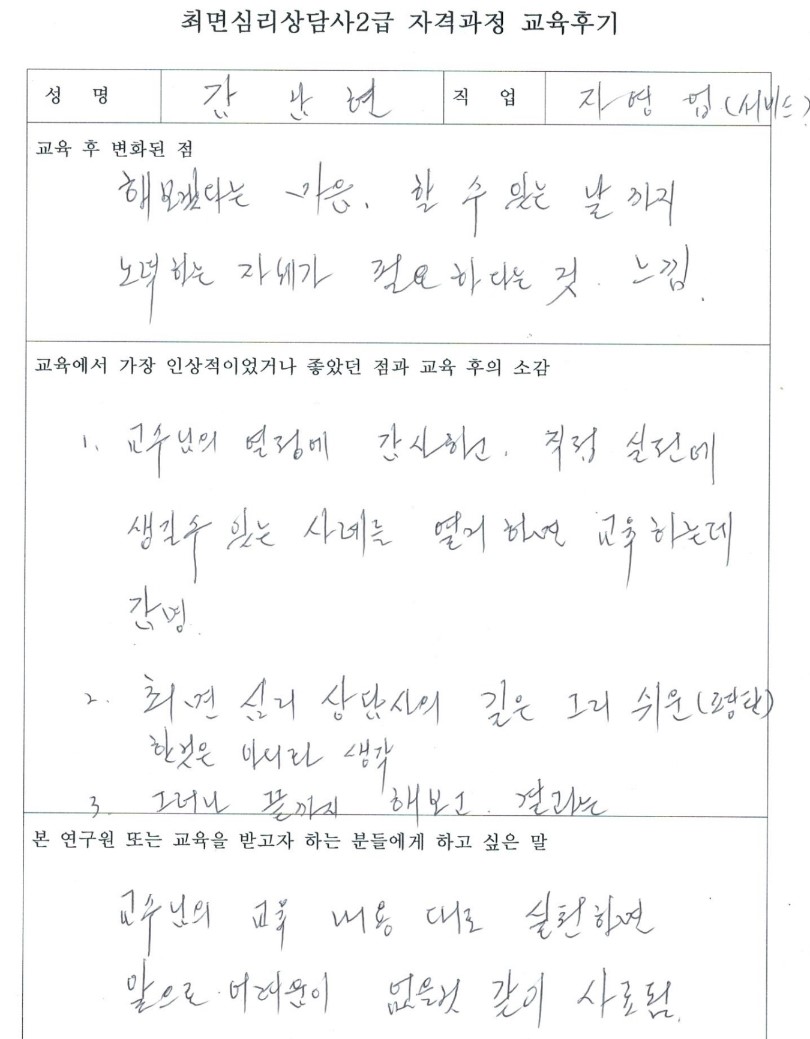 최면심리상담사2급 자격과정 교육후기
성 명 강 난 현 직 업 자영 업 (서비스)
교육 후 변화된 점
해보겠다는 마음. 할 수 있는 날 까지
노력 하는 자세가 필요 하다는 것. 느낌.
교육에서 가장 인상적이었거나 좋았던 점과 교육 후의 소감
1. 교수님의 열정에 감사하고. 직접 실전에
생길수 있는 사례를 열거 하면 교육 하는데
감명.
2. 최면 심리 상담사의 길은 그리 쉬운(평탄)
한것은 아니라 생각
3. 그러나 끝까지 해보고. 결과는
본 연구원 또는 교육을 받고자 하는 분들에게 하고 싶은 말
교수님의 교육 내용 대로 실천하면
앞으로 어려움이 없을것 같이 사료됨.